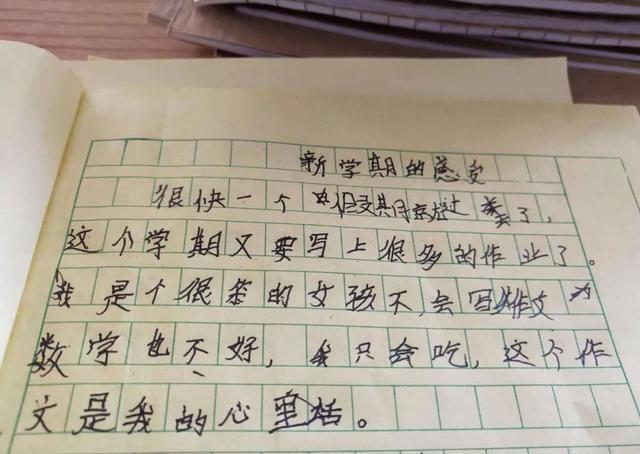 新学期的感受
很快一个期就过了，
这个学期又要写上很多的作业了。
我是个很笨的女孩不会写作文
数学也不好，我只会吃，这个作
文是我的心里话。